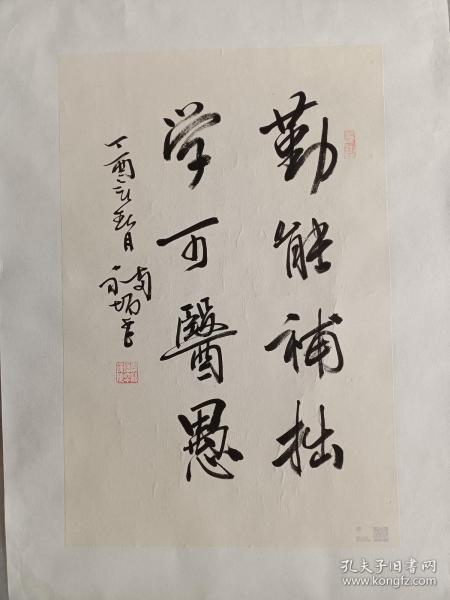 勤能補拙
学可醫愚
丁酉
月
孔夫子旧书网
www.kongfz.com